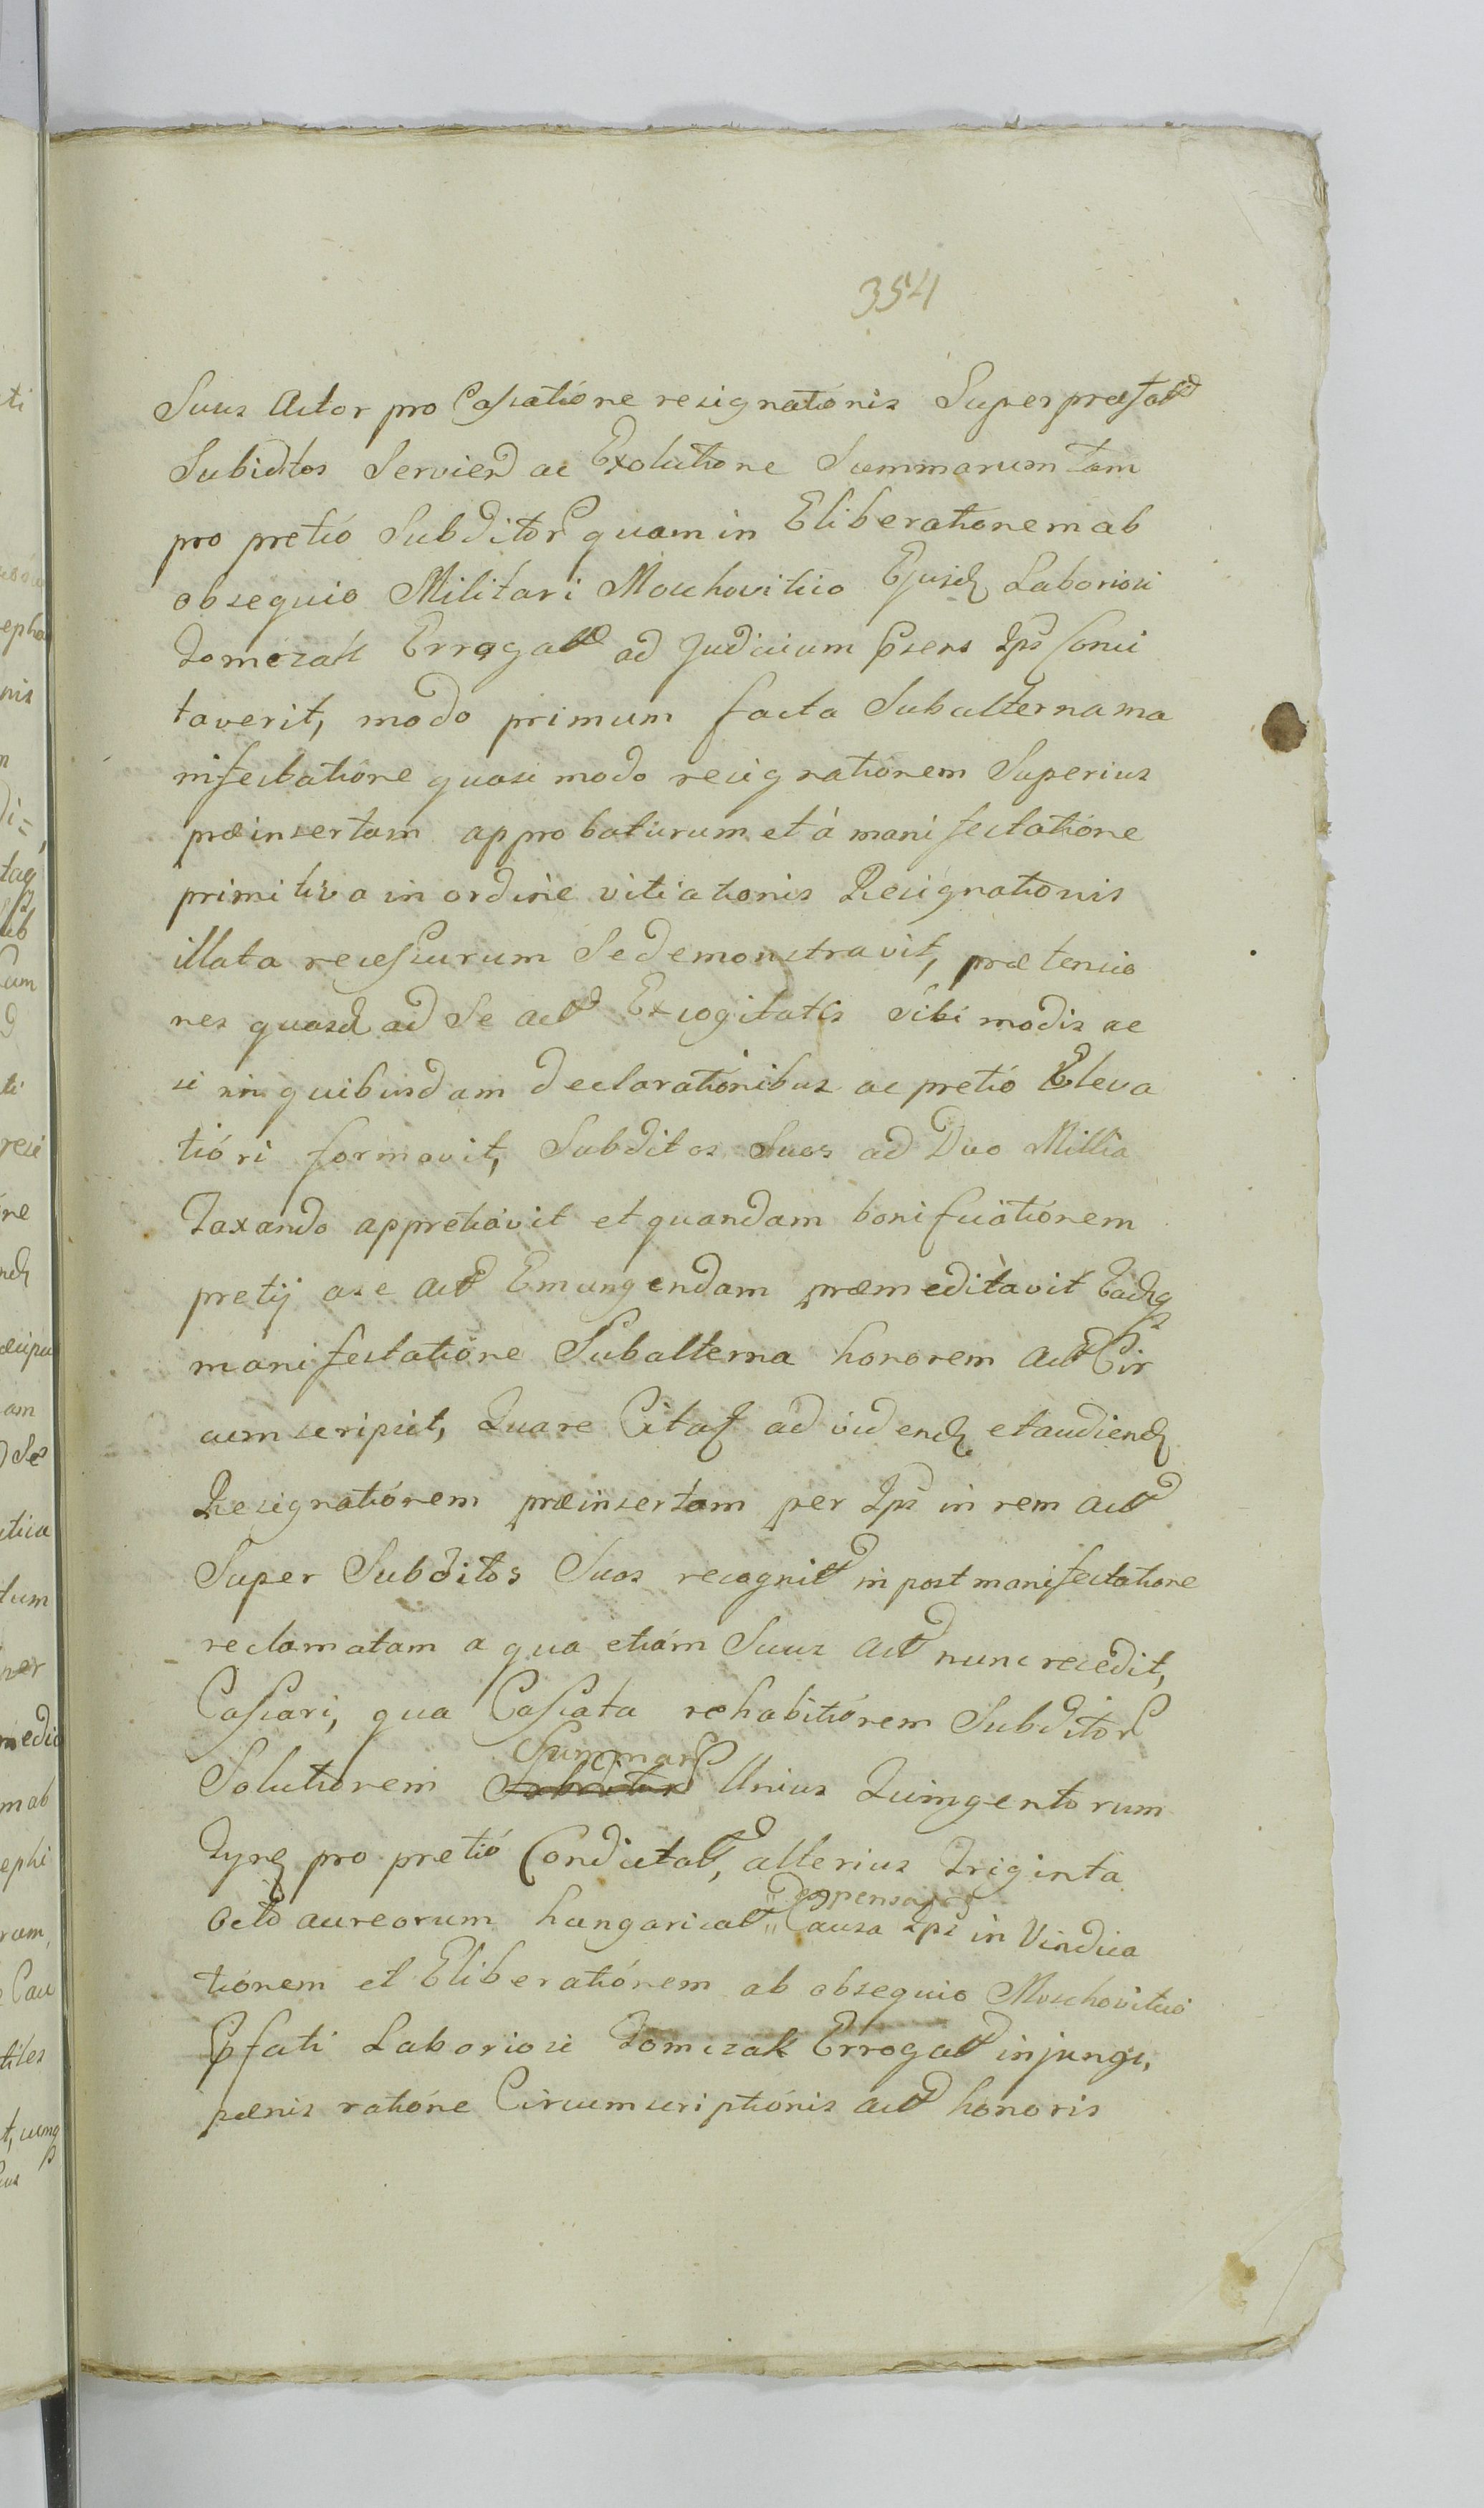 354
Suus Actor pro Cassatióne resignatiónis Super præfat
Subiditos Serviend ac Exolutióne Summarum tam
pro pretió Subditor quam in Eliberationem ab
obsequio Militari Moschovitico Ejusd Laboriosi
Tomczak Errogat ad Judicium psens Ips Conci
taverit, modo primum facta Subalterna ma
nifestatióne quasi modo resignationem Superius
præinsertam approbaturum et à manifestatióne
primitiva in ordine vitiationis Resignationis
illata recessurum Se demonstravit, prætensio
nes quasd ad Se act Excogitatis sibi modis ac
si in quibusdam declaratiónibus ac pretió Eleva
tióri formavit, Subditos Suos ad Duo Millia
Taxando appretiavit et quandam bonificatiónem
pretij a se act Emungendam præmeditavit Eadq
manifestatióne Subalterna honorem act Cir
cumscripsit, Quare Citat ad vidend et audiend
Resignatiónem præinsertam per Ips in rem act
Super Subditos Suos recognit in post manifestatione
reclamatam a qua etiám Suus act nunc recedit,
Cassari, qua Cassata rehabitiónem Subditor
Summar
Solutionem Subditor Unius Quingentorum
Tynf pro pretió Condictat, alterius Triginta
Expensar
Octo aureorum hungarical Causa Ips in Vindica
tiónem et Eliberatiónem ab obsequio Moschoviticó
pfati Laboriosi Tomczak Errogat injungi,
pænis ratióne Circumscriptiónis act honoris